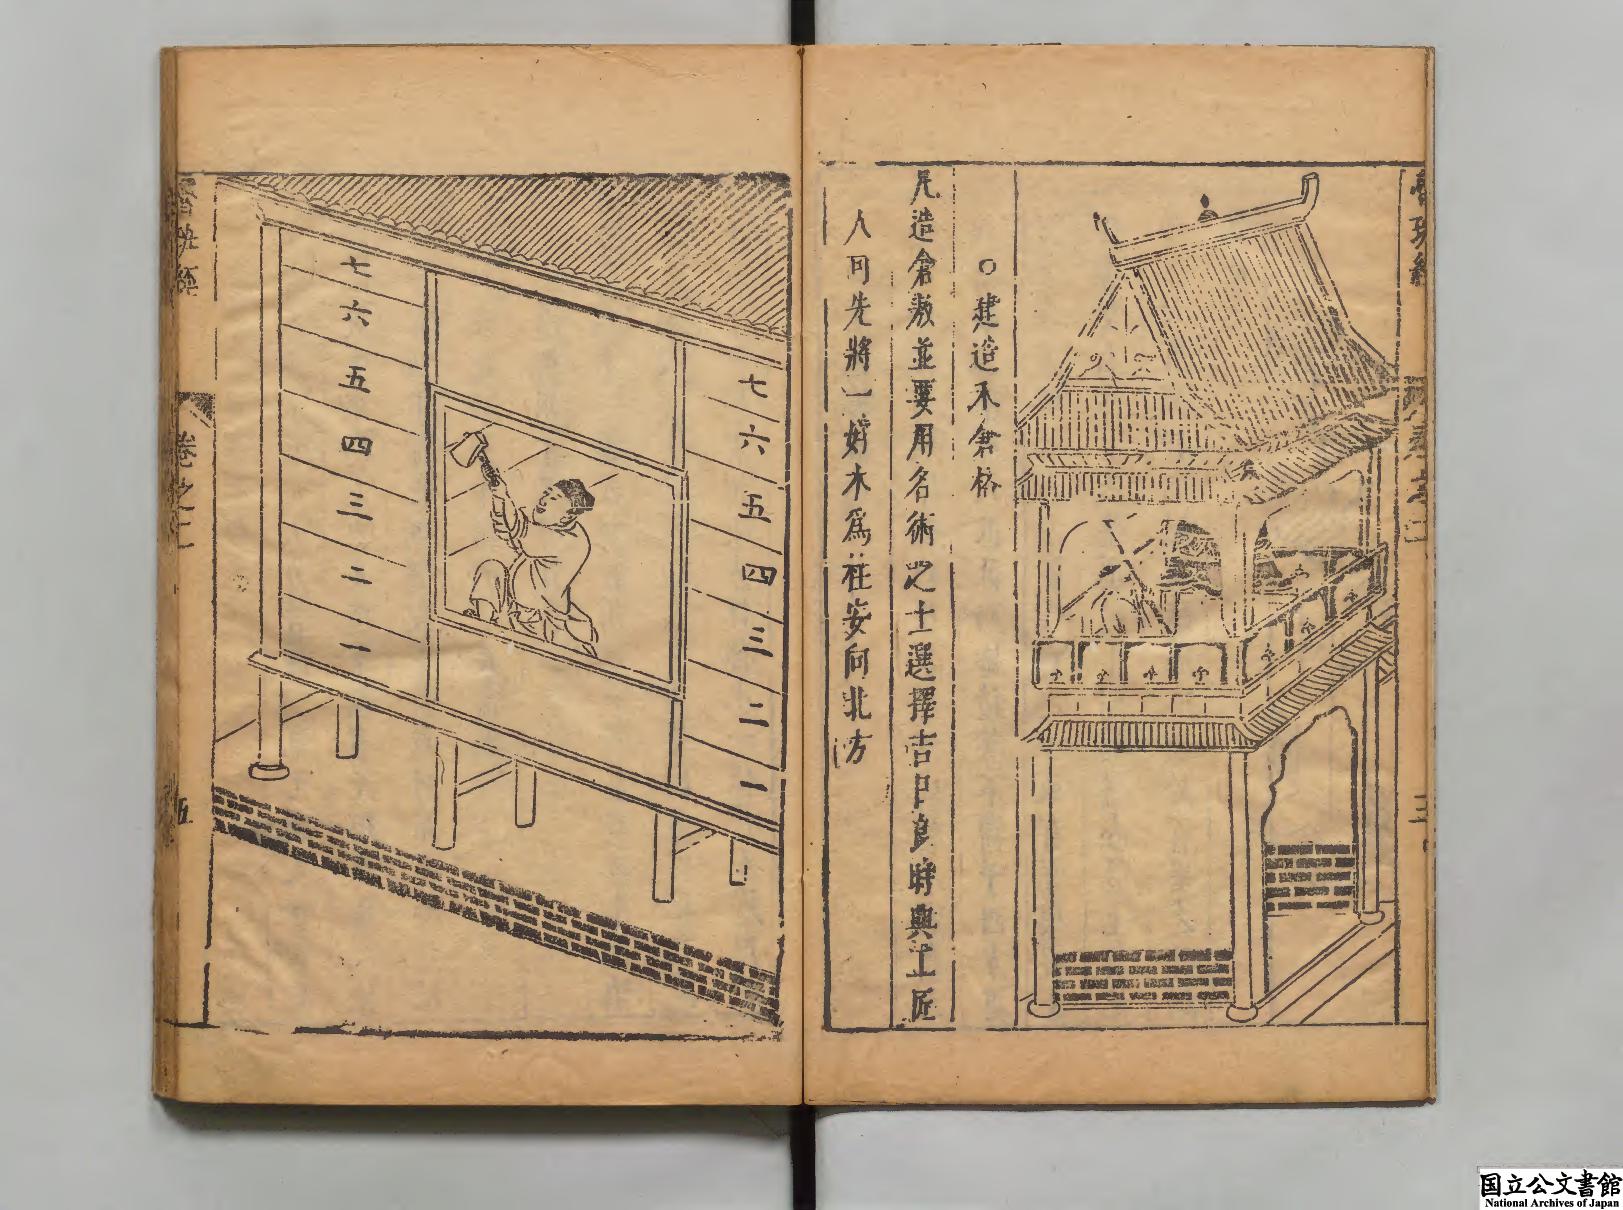 魯班經
○建造禾倉格
凡造倉敖並要用名術之士選擇吉日良時興工匠
人可先將一好木爲柱安向北方
七
六
五
四
三
二
一
七
六
五
四
三
二
一
魯班經
卷之二
五
国立公文書館
National Archives of Japan